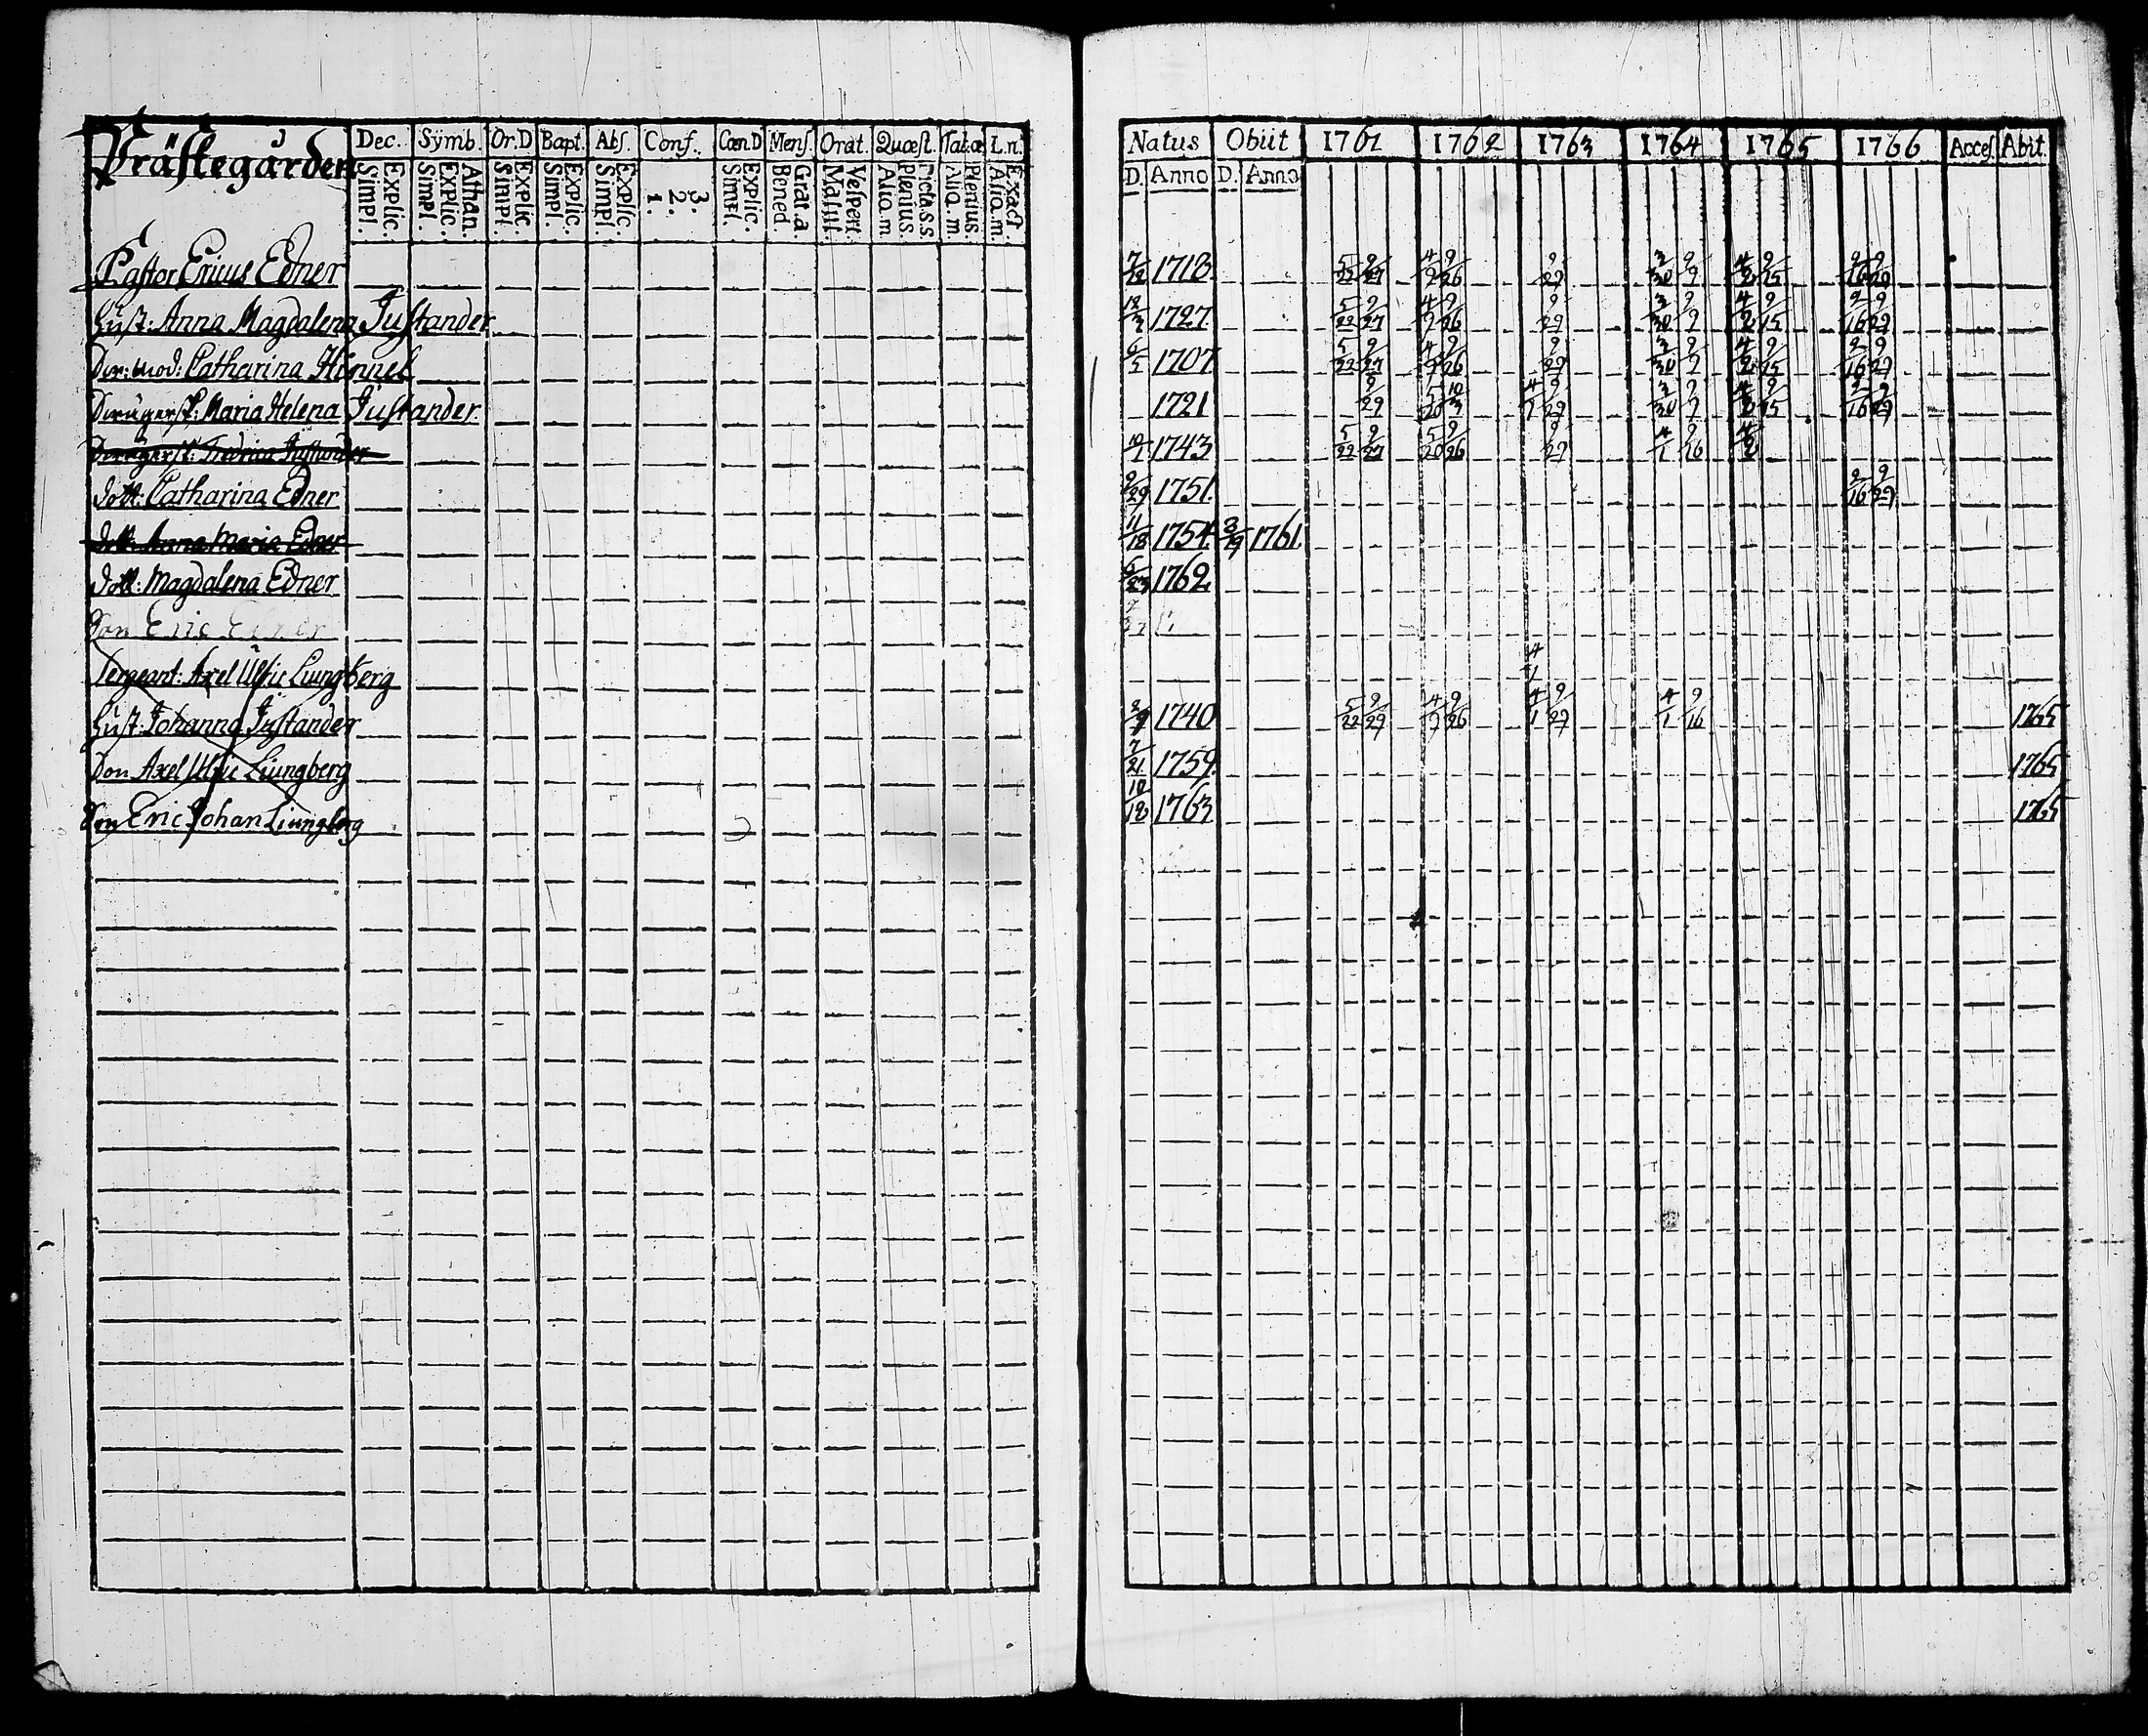 Prästegården
Dec. Symb. Or.D Bapt. Abs. Conf. Cœn.D Mens. Orat. Quæst. Tab.œ L.n.
Simpl. Explic. Simpl. Explic. Athan. Simpl. Explic. Simpl. Explic. Simpl. Explic. 1. 2. 3. Simpl. Explic. Bened. Grat.a. Matut. Vespert. Aliq.m. Plenius. Dicta.s.s. Aliq.m. Plenius. Aliq.m. Exact
Pastor Ericus Edner
Hust: Anna Magdalena Justander
Catharina Hinnel
Maria Helena Justander
Justander
Dott: Catharina Edner
Dott: Anna Maria Edner
Dott: Magdalena Edner
Son Eric Edner
Sergeant: Axel Ulric Liungberg
Hust: Johanna Justander
Son Axel Ulric Liungberg
Son Eric Johan Liungberg
Natus Obiit 1761 1762 1763 1764 1765 1766 Acces. Abit.
D. Anno D. Anno
1718 5/22 9/27 4/9 9/26 9/29 3/30 9/9 4/2 9/15 2/16 9/29
12/3 1727 5/22 9/27 4/9 9/26 9/29 3/30 9/9 4/2 9/15 2/16 9/29
6/5 1707 5/22 9/27 4/9 9/26 9/29 3/30 9/9 4/2 9/15 2/16 9/29
1721 9/29 5/20 10/3 4/1 9/29 3/30 9/9 4/2 9/15 2/16 9/29
10/1 1743 5/22 9/27 5/20 9/26 9/29 4/1 9/16 4/2
9/29 1751 2/16 9/29
11/18 1754 3/19 1761
1762
4/1
2/9 1740 5/22 9/29 4/9 9/26 4/1 9/29 4/1 9/16 1765
7/21 1759 1765
10/18 1763 1765